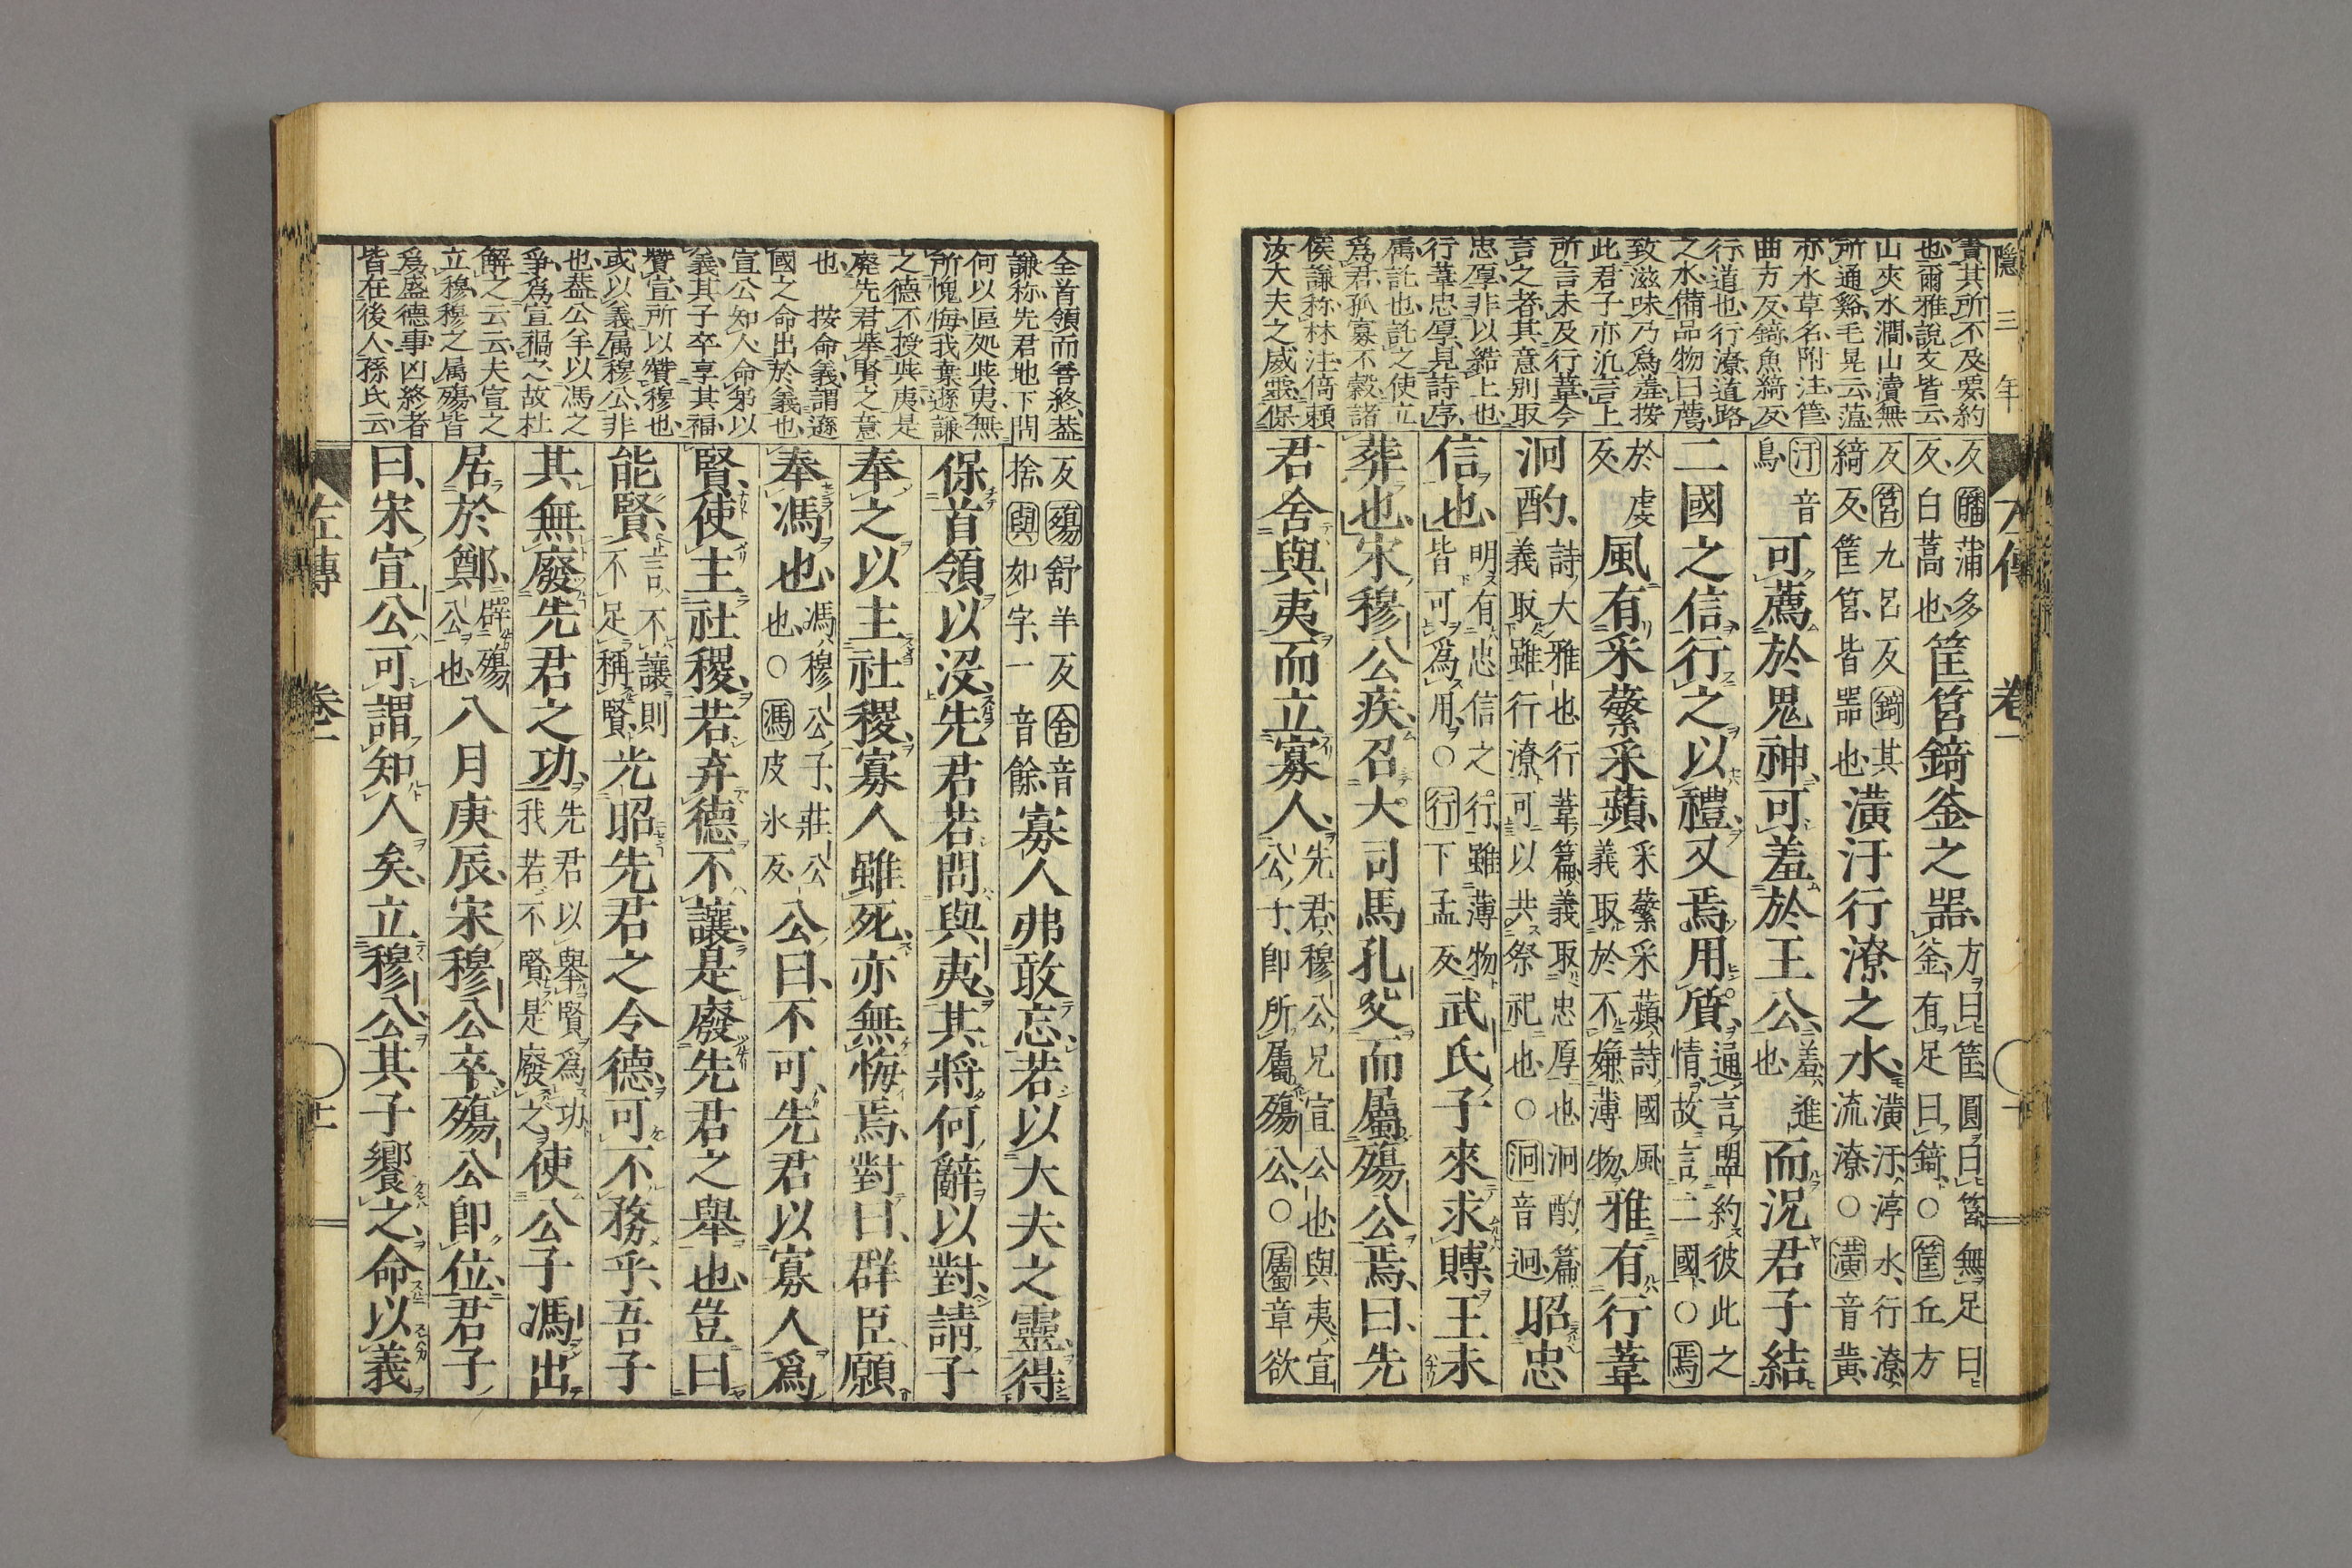 隱三年
左傳 卷一
責其所不及要約
也爾雅說文皆云
山夾水澗山瀆無
所通谿毛晃云薀
亦水草名附注筐
曲方反錡魚綺反
行道也行潦道路
之水備品物曰薦
致滋味乃爲羞按
此君子亦汎言上
所言未及行葦今
言之者其意別取
忠厚非以結上也
行葦忠厚見詩序
属託也託之使立
爲君孤寡不穀諸
侯謙称林注倚頼
汝大夫之威靈保
反皤蒲多反白蒿也筐筥錡釜之器方曰筐圓曰筥無足曰釜有足曰錡○筐丘方
反筥九呂反錡其綺反筐筥皆器也潢汙行潦之水潢汙停水行潦流潦○潢音黃
汙音烏可薦於鬼神可羞於王公羞進也而況君子結
二國之信行之以禮又焉用質通言盟約彼此之情故言二國○焉
於虔反風有采蘩采蘋采蘩采蘋詩國風義取於不嫌薄物雅有行葦
泂酌詩大雅也行葦篇義取忠厚也泂酌篇義取雖行潦可以共祭祀也○泂音迥昭忠
信也明有忠信之行雖薄物皆可爲用○行下孟反武氏子來求賻王未
葬也宋穆公疾召大司馬孔父而屬殤公焉曰先
君舍與夷而立寡人先君穆公兄宣公也與夷宣公子即所屬殤公○屬章欲
全首領而善終蓋
謙称先君地下問
何以區処與夷無
所愧悔我棄遜謙
之德不授與夷是
廃先君挙賢之意
也 按命義謂遜
國之命出於義也
宣公知人命弟以
義其子卒享其福
賛宣所以賛穆也
或以義属穆公非
也蓋公羊以馮之
爭爲宣禍之故杜
解之云云夫宣之
立穆穆之属殤皆
爲盛德事凶終者
皆在後人孫氏云
反殤舒羊反舍音捨與如字一音餘寡人弗敢忘若以大夫之靈得
保首領以沒先君若問與夷其將何辭以對請子
奉之以主社稷寡人雖死亦無悔焉對曰群臣願
奉馮也馮穆公子莊公也○馮皮氷反公曰不可先君以寡人爲
賢使主社稷若弃德不讓是廢先君之舉也豈曰
能賢言不讓則不足稱賢光昭先君之令德可不務乎吾子
其無廢先君之功先君以舉賢爲功我若不賢是廢之使公子馮出
居於鄭辟殤公也八月庚辰宋穆公卒殤公即位君子
曰宋宣公可謂知人矣立穆公其子饗之命以義
左傳 卷一